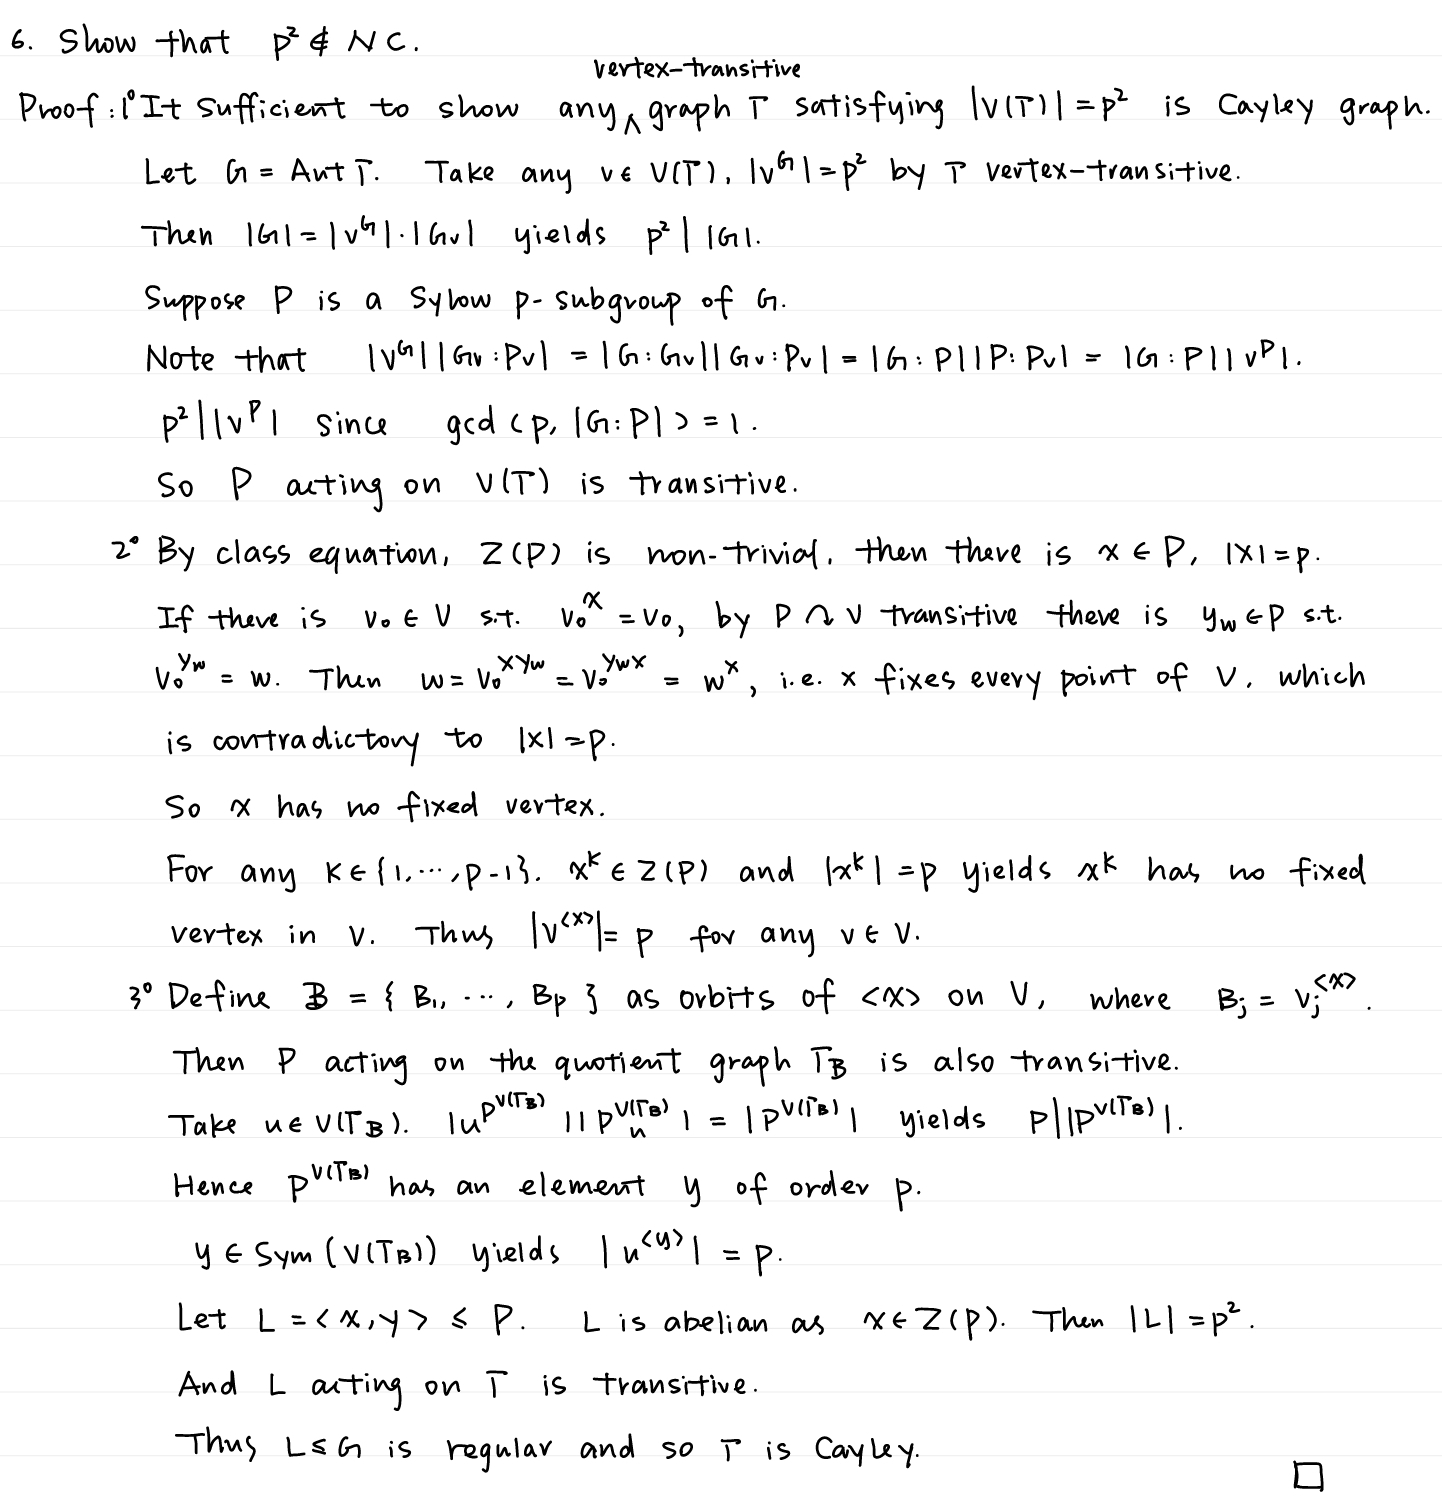 6. Show that p² ∉ NC.
vertex-transitive
Proof: 1° It sufficient to show any ∧ graph Γ satisfying |V(Γ)| = p² is Cayley graph.
Let G = Aut Γ. Take any v ∈ V(Γ), |v^G| = p² by Γ vertex-transitive.
Then |G| = |v^G|·|Gv| yields p² | |G|.
Suppose P is a Sylow p-subgroup of G.
Note that |v^G||Gv:Pv| = |G:Gv||Gv:Pv| = |G:P||P:Pv| = |G:P||v^P|.
p² | |v^P| since gcd(p, |G:P|) = 1.
So P acting on V(Γ) is transitive.
2° By class equation, Z(P) is non-trivial, then there is x ∈ P, |x| = p.
If there is v₀ ∈ V s.t. v₀^x = v₀, by P ↷ V transitive there is y_w ∈ P s.t.
v₀^{y_w} = w. Then w = v₀^{xy_w} = v₀^{y_wx} = w^x, i.e. x fixes every point of V, which
is contradictory to |x| = p.
So x has no fixed vertex.
For any k ∈ {1, ..., p-1}. x^k ∈ Z(P) and |x^k| = p yields x^k has no fixed
vertex in V. Thus |v^{<x>}| = p for any v ∈ V.
3° Define B = { B₁, ..., Bp } as orbits of <x> on V, where Bj = vj^{<x>}.
Then P acting on the quotient graph Γ_B is also transitive.
Take u ∈ V(Γ_B). |u^{P^{V(Γ_B)}}||P_u^{V(Γ_B)}| = |P^{V(Γ_B)}| yields p | |P^{V(Γ_B)}|.
Hence P^{V(Γ_B)} has an element y of order p.
y ∈ Sym(V(Γ_B)) yields |u^{<y>}| = p.
Let L = <x,y> ≤ P. L is abelian as x ∈ Z(P). Then |L| = p².
And L acting on Γ is transitive.
Thus L ≤ G is regular and so Γ is Cayley.
□